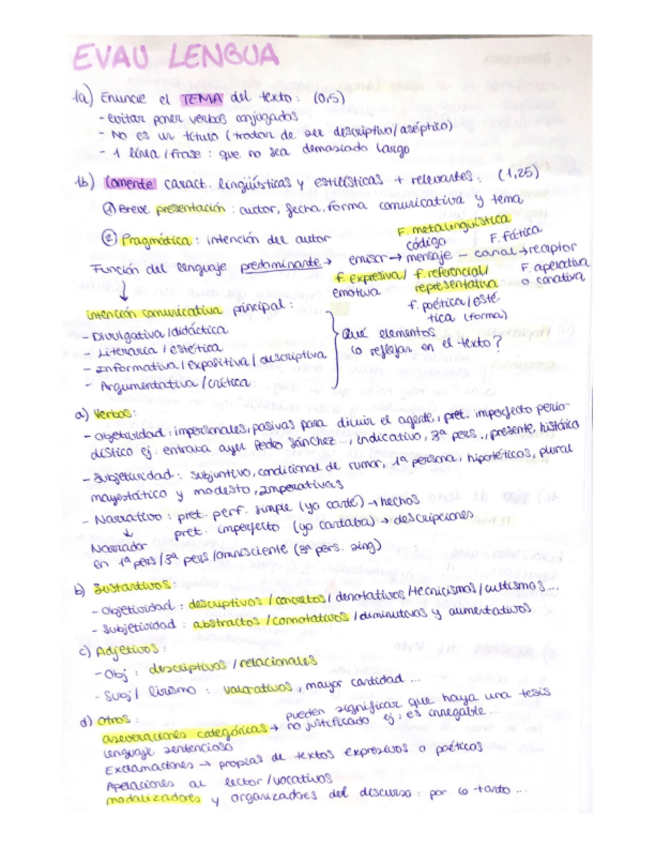 EVAU LENGUA
1a) Enuncie el TEMA del texto: (0,5)
- evitar poner verbos conjugados
- No es un título (tratar de ser descriptivo/aséptico)
- 1 línea/frase: que no sea demasiado largo
1b) Comente caract. lingüísticas y estilísticas + relevantes: (1,25)
① Breve presentación: autor, fecha, forma comunicativa y tema
② Pragmática: intención del autor
F. metalingüística
código
F. fática
Función del lenguaje predominante → emisor → mensaje – canal → receptor
f. expresiva/ emotiva
f. referencial/ representativa
F. apelativa o conativa
f. poética/esté-
tica (forma)
intención comunicativa principal:
- Divulgativa/didáctica
- Literaria/estética
- Informativa/expositiva/descriptiva
- Argumentativa/crítica
¿Qué elementos
lo reflejan en el texto?
a) Verbos:
- Objetividad: impersonales, pasivas para diluir el agente, pret. imperfecto perio-
dístico ej: entraba ayer Pedro Sánchez..., indicativo, 3ª pers., presente, histórico
- Subjetividad: subjuntivo, condicional de rumor, 1ª persona, hipotéticos, plural
mayestático y modesto, imperativas
- Narrativo: pret. perf. simple (yo canté) → hechos
pret. imperfecto (yo cantaba) → descripciones
Narrador
en 1ª pers/3ª pers/omnisciente (3ª pers. sing)
b) Sustantivos:
- Objetividad: descriptivos/concretos/denotativos/tecnicismos/cultismos...
- Subjetividad: abstractos/connotativos/diminutivos y aumentativos
c) Adjetivos:
- Obj: descriptivos/relacionales
- Subj/ lirismo: valorativos, mayor cantidad...
d) Otros:
pueden significar que haya una tesis
aseveraciones categóricas → no justificado ej: es innegable...
Lenguaje sentencioso
Exclamaciones → propias de textos expresivos o poéticos
Apelaciones al lector/vocativos
modalizadores y organizadores del discurso: por lo tanto...